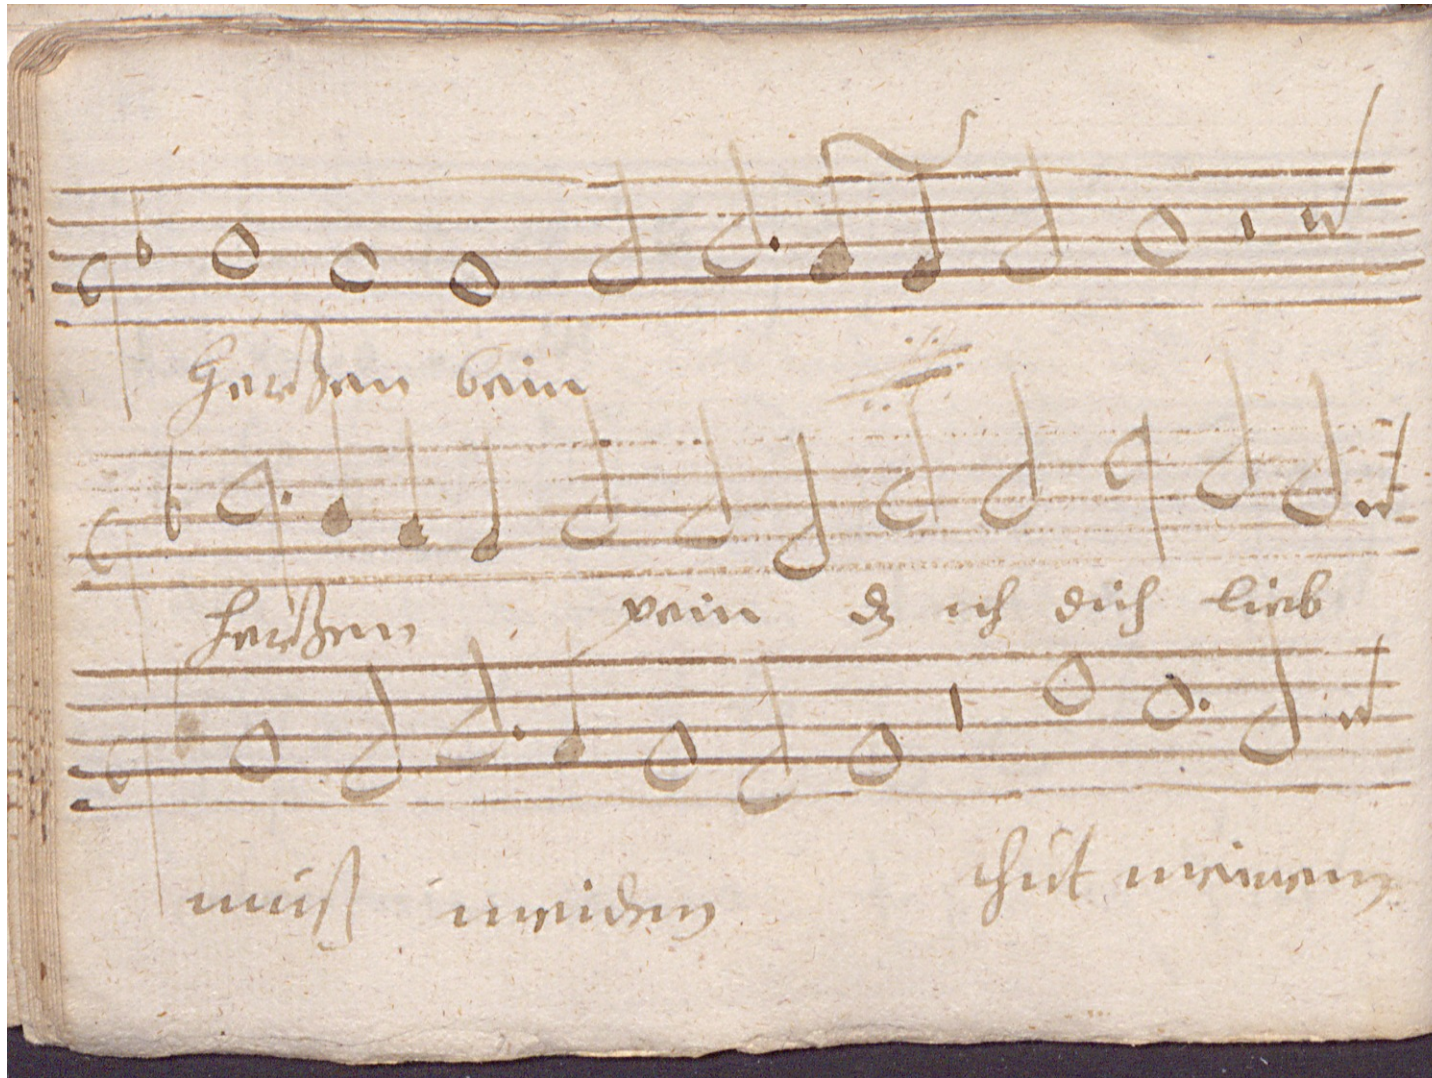 hertzen bein
hertzen pein dz ich dich lieb
muß meiden thut meinem